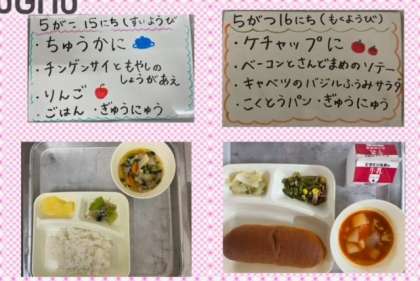 5がつ15にち(すいようび)
・ちゅうかに
・チンゲンサイともやしの
しょうがあえ
・りんご
・ごはん ・ぎゅうにゅう
5がつ16にち(もくようび)
・ケチャップに
・ベーコンとさんどまめのソテー
・キャベツのバジルふうみサラダ
・こくとうパン ・ぎゅうにゅう
牛乳